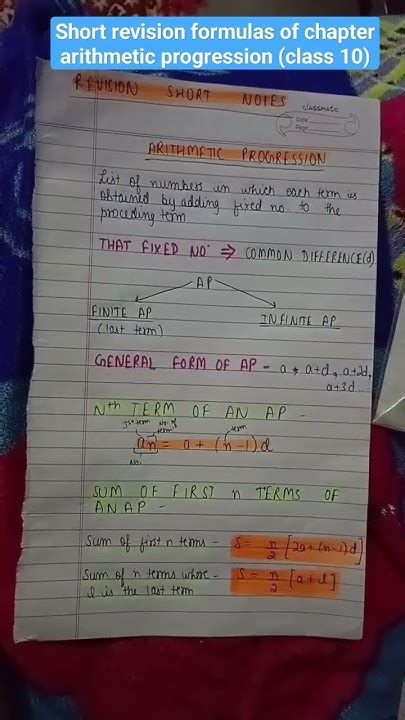 Short revision formulas of chapter
arithmetic progression (class 10)
REVISION SHORT NOTES
classmate
Date
Page
ARITHMETIC PROGRESSION
List of numbers in which each term is
obtained by adding fixed no. to the
preceding term
THAT FIXED NO. ⇒ COMMON DIFFERENCE(d)
AP
FINITE AP
(last term)
INFINITE AP
GENERAL FORM OF AP - a, a+d, a+2d,
a+3d...
Nth TERM OF AN AP -
1st term No. of term term
an = a + (n-1)d
No.
SUM OF FIRST n TERMS OF
AN AP -
Sum of first n terms - S = n/2 [2a+(n-1)d]
Sum of n terms where - S = n/2 [a+l]
l is the last term